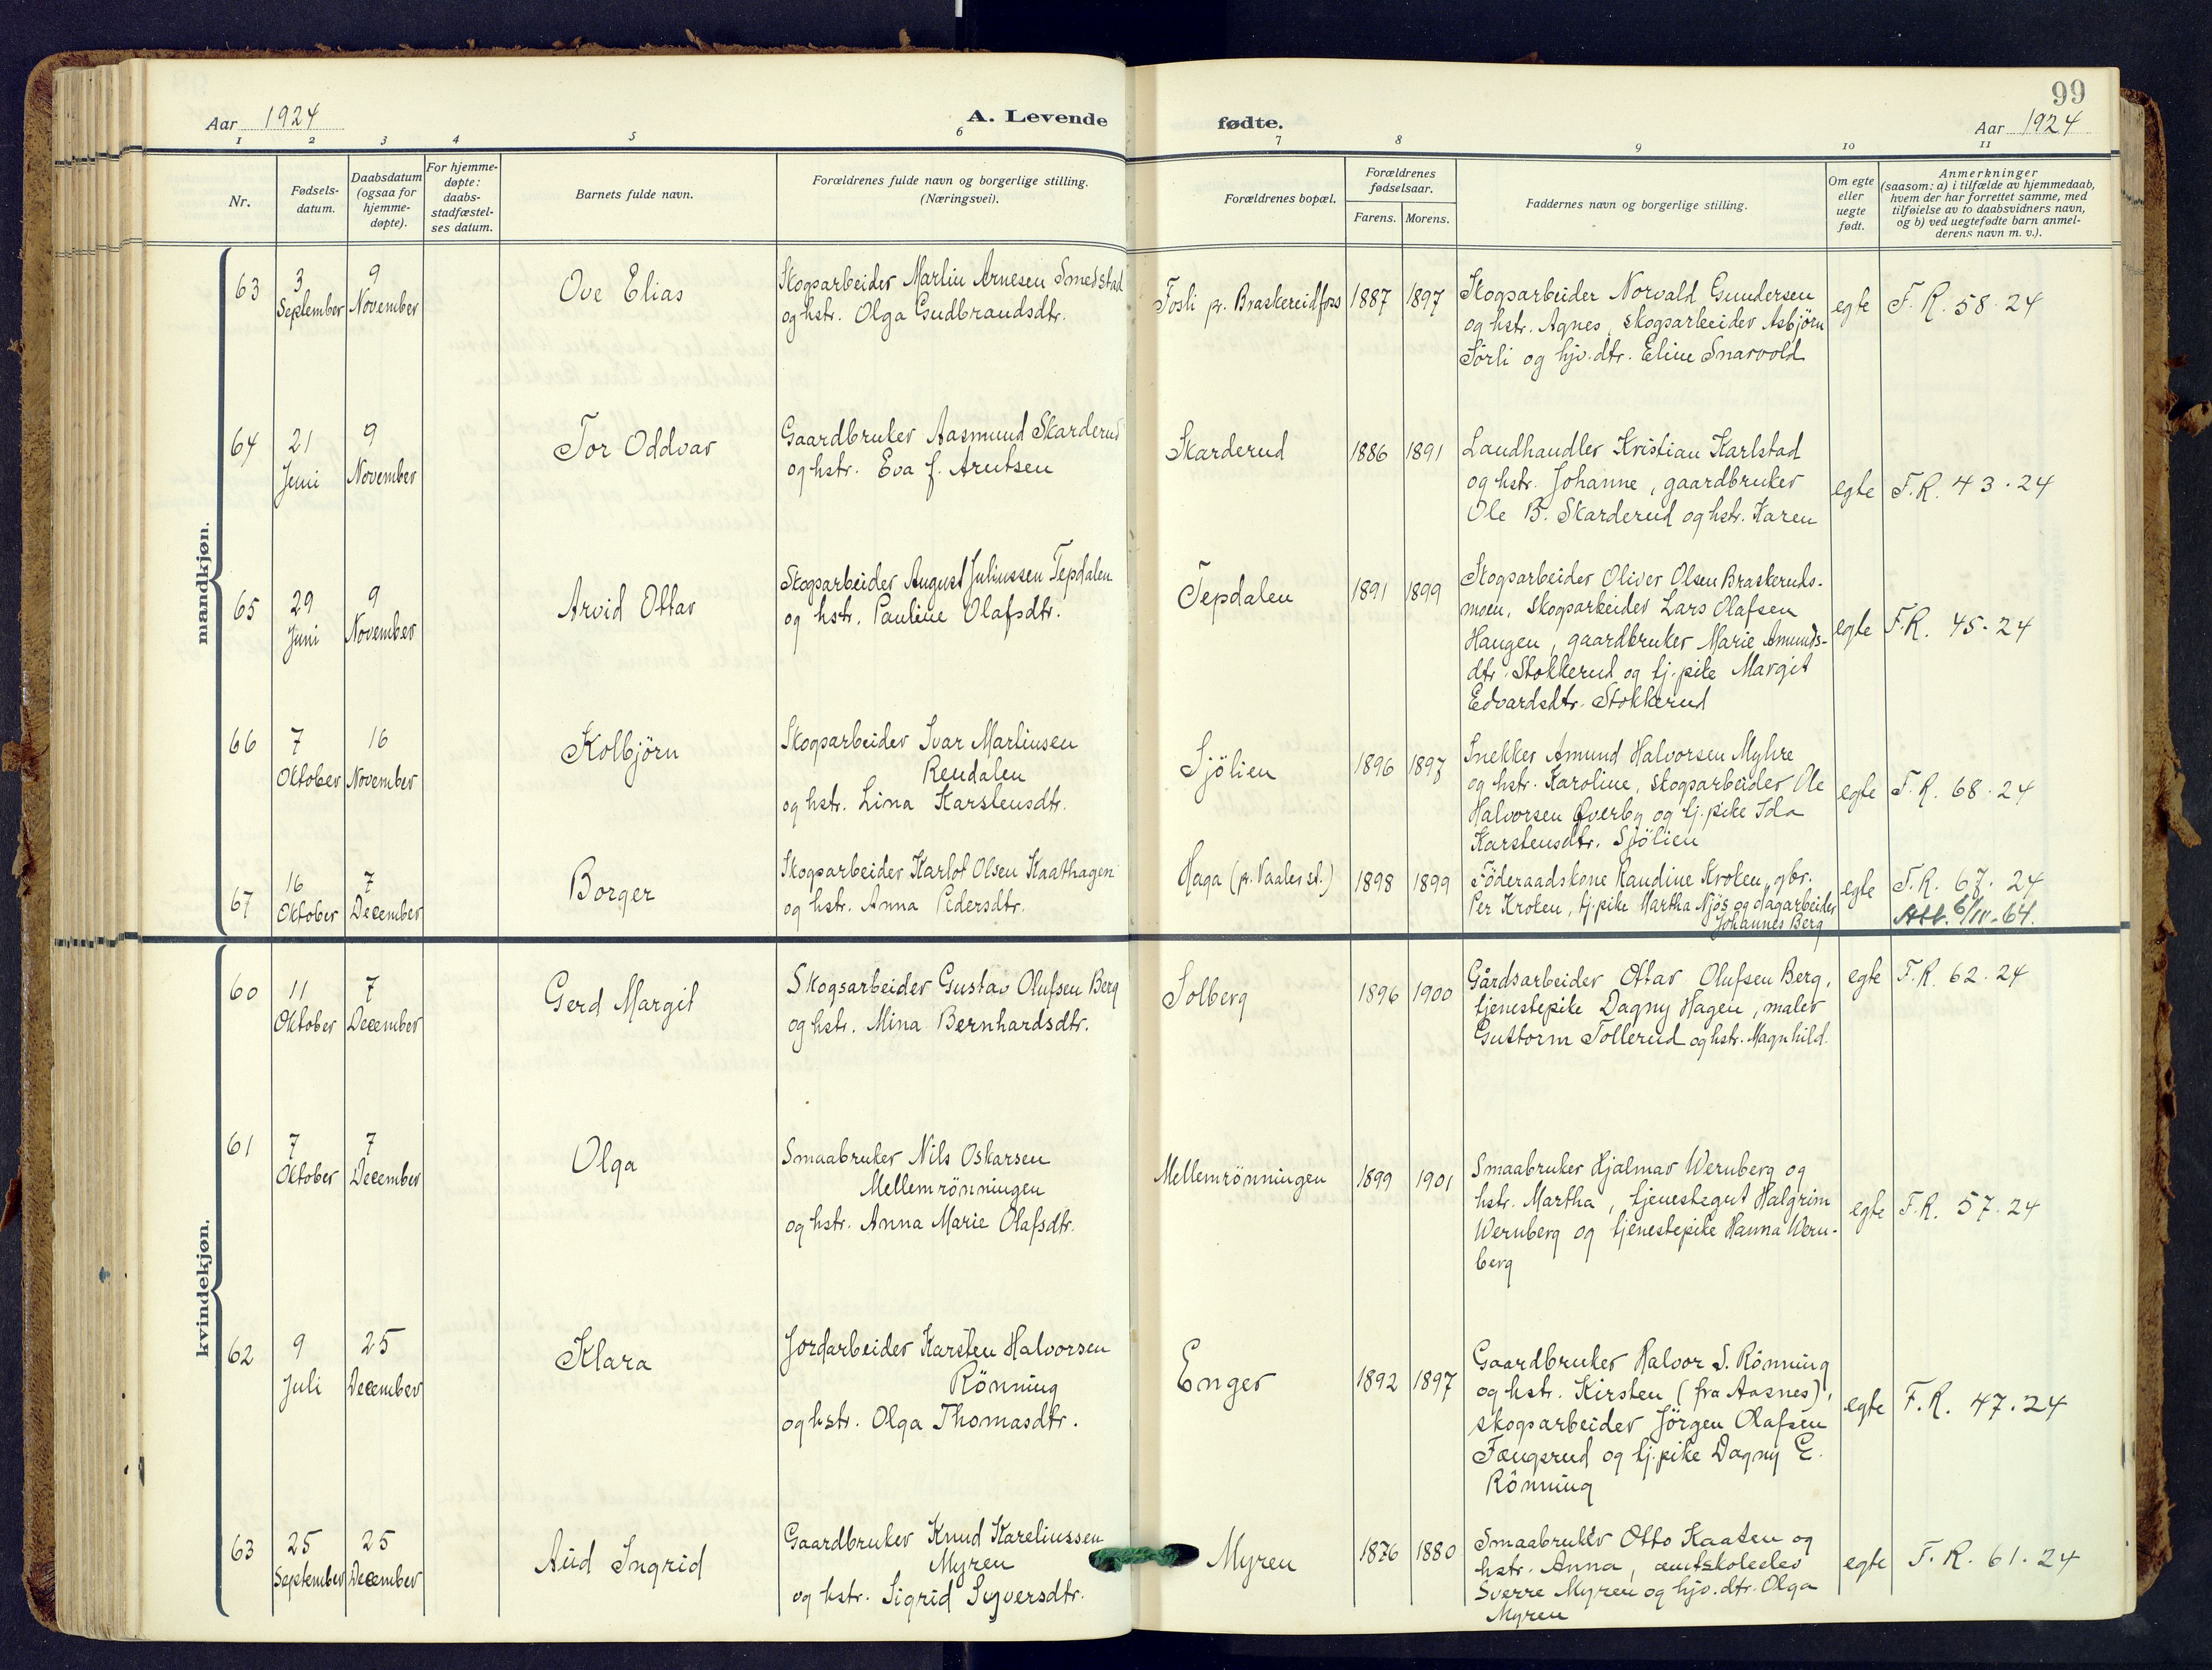 99
Aar 1924
A. Levende fødte.
Aar 1924
1 2 3 4 5 6 7 8 9 10 11
Nr.
Fødsels-
datum.
Daabsdatum
(ogsaa for
hjemme-
døpte).
For hjemme-
døpte:
daabs-
stadfæstel-
ses datum.
Barnets fulde navn.
Forældrenes fulde navn og borgerlige stilling.
(Næringsvei).
Forældrenes bopæl.
Forældrenes
fødselsaar.
Farens. Morens.
Faddernes navn og borgerlige stilling.
Om egte
eller
uegte
født.
Anmerkninger
(saasom: a) i tilfælde av hjemmedaab,
hvem der har forrettet samme, med
tilføielse av to daabsvidners navn,
og b) ved uegtefødte barn anmel-
derens navn m. v.).
mandkjøn.
63
3
September
9
November
Ove Elias
Skogsarbeider Martin Arnesen Smedstad
og hstr. Olga Gudbrandsdtr.
Fosli pr. Braskereidfoss
1887 1897
Skogsarbeider Norvald Gundersen
og hstr. Agnes, skogsarbeider Asbjørn
Sørli og hjv.dtr. Eline Snarvold
egte
F.R. 58.24
64
21
Juni
9
November
Tor Oddvar
Gaardbruker Aasmund Skarderud
og hstr. Eva f. Arntsen
Skarderud
1886 1891
Landhandler Kristian Karlstad
og hstr. Johanne, gaardbruker
Ole B. Skarderud og hstr. Karen
egte
F.R. 43.24
65
29
Juni
9
November
Arvid Ottar
Skogsarbeider August Juliussen Tepdalen
og hstr. Pauline Olafsdtr.
Tepdalen
1891 1899
Skogsarbeider Oliver Olsen Braskeruds-
moen, skogsarbeider Lars Olafsen
Haugen, gaardbruker Marie Amunds-
dtr. Stokkerud og tj.pike Margit
Edvardsdtr. Stokkerud
egte
F.R. 45.24
66
7
Oktober
16
November
Kolbjörn
Skogsarbeider Ivar Martinsen
Rendalen
og hstr. Lina Karstensdtr.
Sjölien
1896 1897
Snekker Amund Halvorsen Myhre
og hstr. Karoline, skogsarbeider Ole
Halvorsen Øverby og tj.pike Ida
Karstensdtr. Sjölien
egte
F.R. 68.24
67
16
Oktober
7
December
Borger
Skogsarbeider Karlot Olsen Kaathagen
og hstr. Anna Pedersdtr.
Haga (pr. Vaaler st.)
1898 1899
Föderaadskone Randine Kroken, gbr.
Per Kroken, tj.pike Martha Njös og dagarbeider
Johannes Berg
egte
F.R. 67.24
Att. 6/IV-64.
kvindekjøn.
60
11
Oktober
7
December
Gerd Margit
Skogsarbeider Gustav Olufsen Berg
og hstr. Mina Bernhardsdtr.
Solberg
1896 1900
Gårdsarbeider Ottar Olufsen Berg,
tjenestepike Dagny Hagen, maler
Guttorm Tollerud og hstr. Magnhild.
egte
F.R. 62.24
61
7
Oktober
7
December
Olga
Smaabruker Nils Oskarsen
Mellemrönningen
og hstr. Anna Marie Olafsdtr.
Mellemrönningen
1899 1901
Smaabruker Hjalmar Wernberg og
hstr. Martha, tjenestegut Halgrim
Wernberg og tjenestepike Hanna Wern-
berg
egte
F.R. 57.24
62
9
Juli
25
December
Klara
Jordarbeider Karsten Halvorsen
Rönning
og hstr. Olga Thomasdtr.
Enger
1892 1897
Gaardbruker Halvor S. Rönning
og hstr. Kirsten (fra Aasnes),
skogsarbeider Jörgen Olafsen
Fangsrud og tj.pike Dagny E.
Rönning
egte
F.R. 47.24
63
25
September
25
December
Aud Ingrid
Gaardbruker Knud Kareliussen
Myren
og hstr. Sigrid Syversdtr.
Myren
1876 1880
Smaabruker Otto Kaaten og
hstr. Anna, amtskoleelev
Sverre Myren og hjv.dtr. Olga
Myren
egte
F.R. 61.24